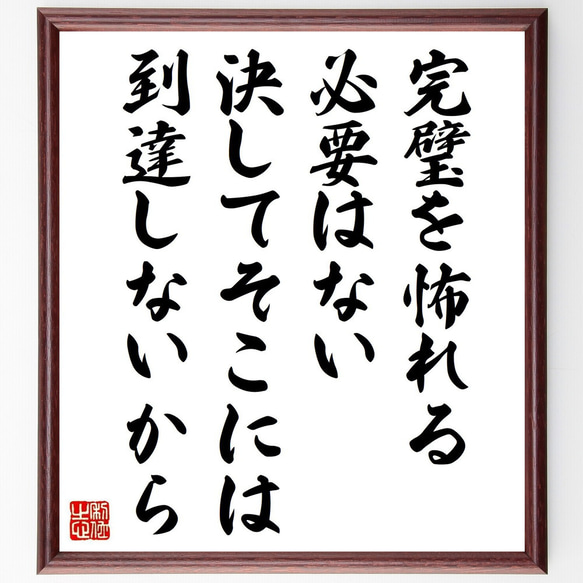 完璧を怖れる
必要はない
決してそこには
到達しないから